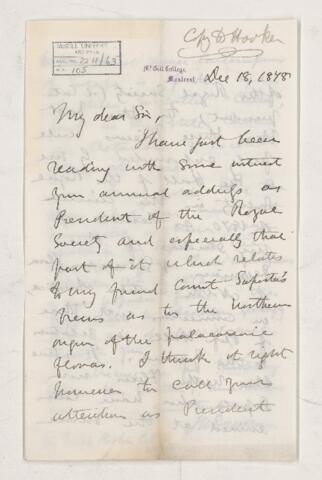 McGILL UNIVERSITY
ARCHIVES
ACC. NO. 2211/63
REF. 103
Cpy D Hooker
McGill College,
Montreal.
Dec 18, 1878
My dear Sir,
I have just been
reading with some interest
your annual address as
President of the Royal
Society and especially that
part of it which relates
to my friend Count Saporta's
views as to the Northern
origin of the palaeozoic
floras. I think it right
however to call your
attention as President